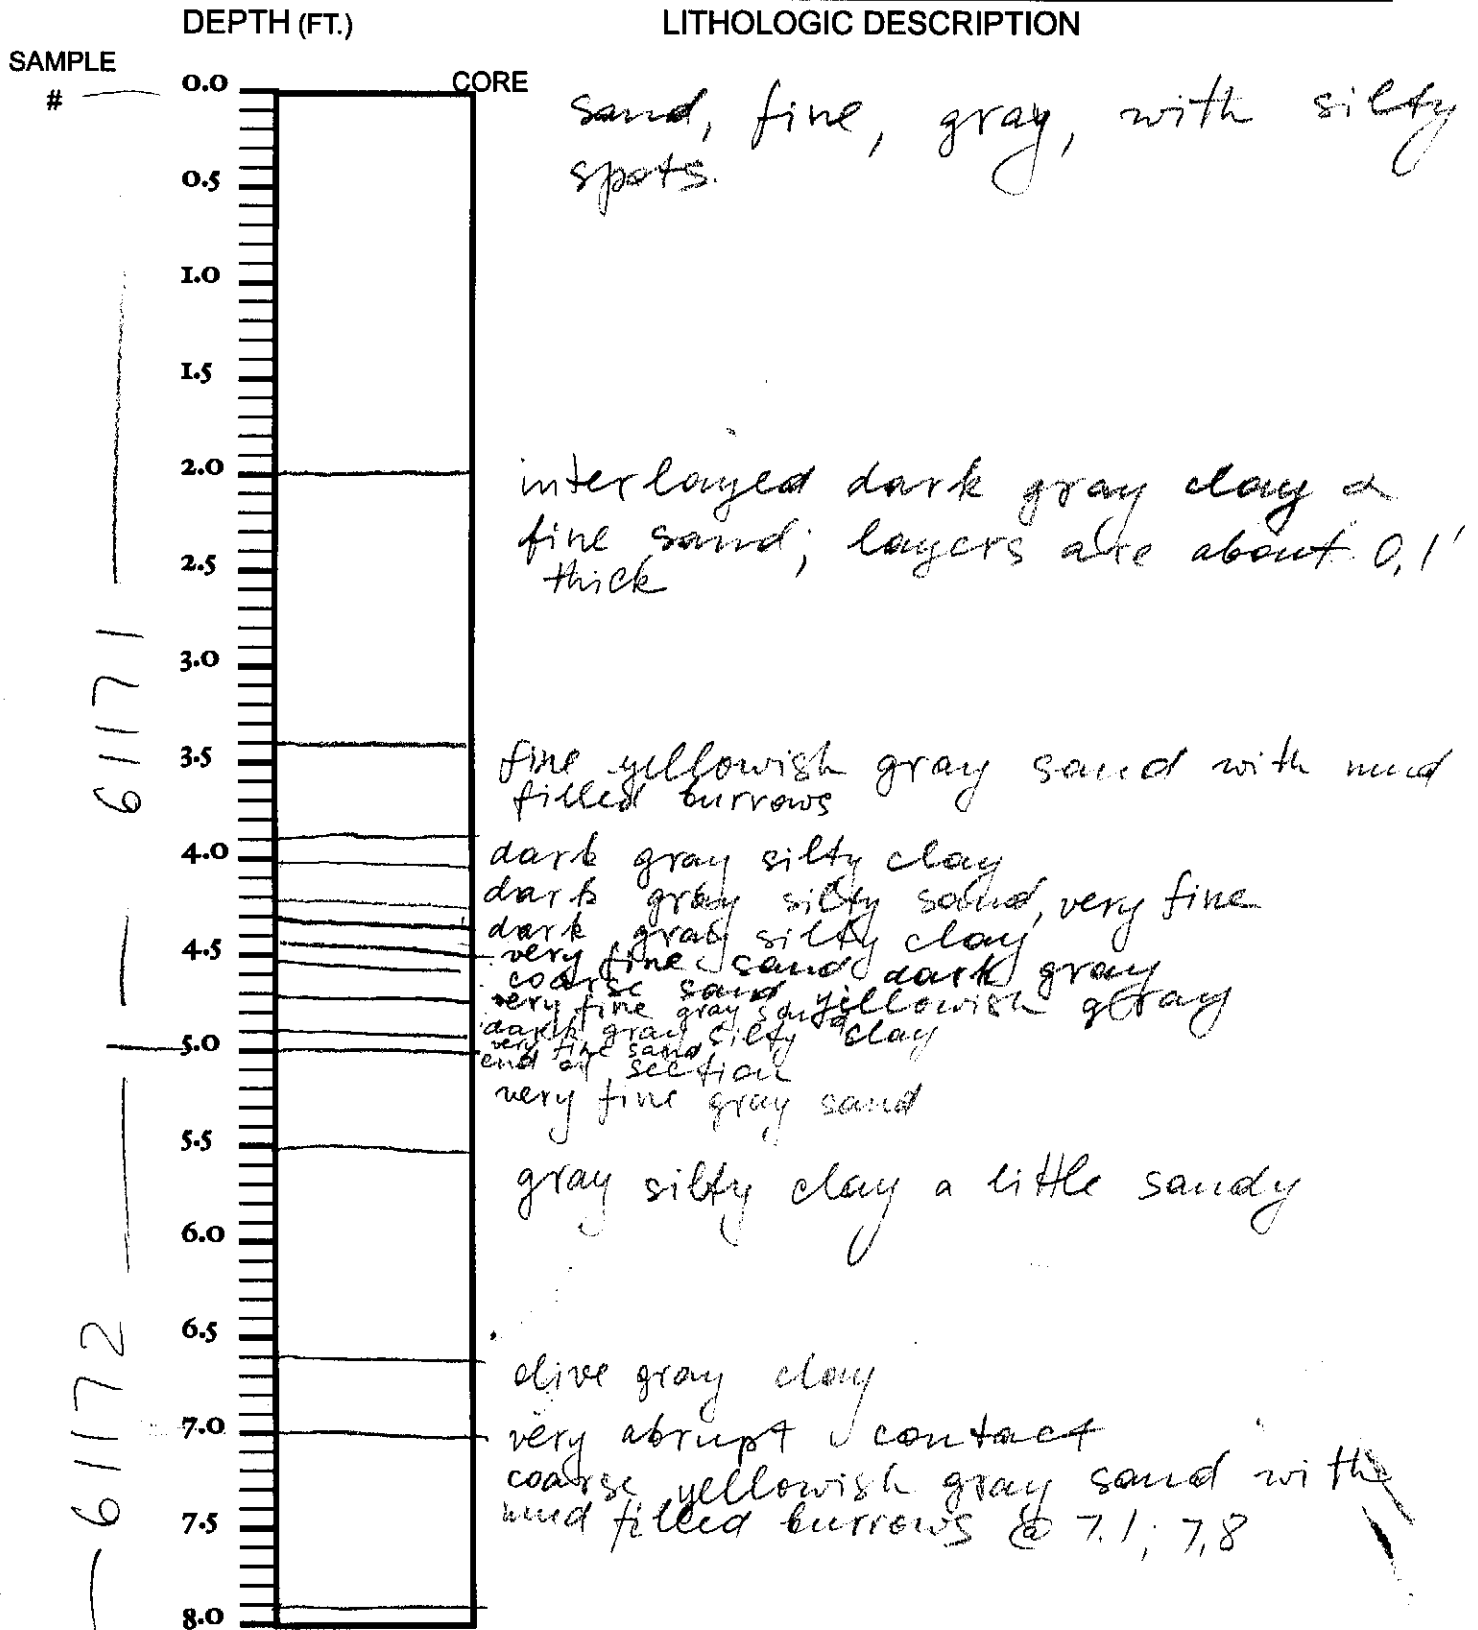 DEPTH (FT.)
LITHOLOGIC DESCRIPTION
SAMPLE
#
CORE
0.0
sand, fine, gray, with silty
spots.
0.5
1.0
1.5
2.0
interlayed dark gray clay &
fine sand; layers are about 0,1'
thick
2.5
6171
3.0
3.5
fine yellowish gray sand with mud
filled burrows
4.0
dark gray silty clay
dark gray silty sand, very fine
dark gray silty clay
4.5
very fine sand dark gray
coarse sand yellowish gray
very fine gray sand
dark gray silty clay
very fine sand
5.0
end of section
very fine gray sand
5.5
gray silty clay a little sandy
6.0
6.5
6172
olive gray clay
7.0
very abrupt contact
coarse yellowish gray sand with
mud filled burrows @ 7.1; 7,8
7.5
8.0